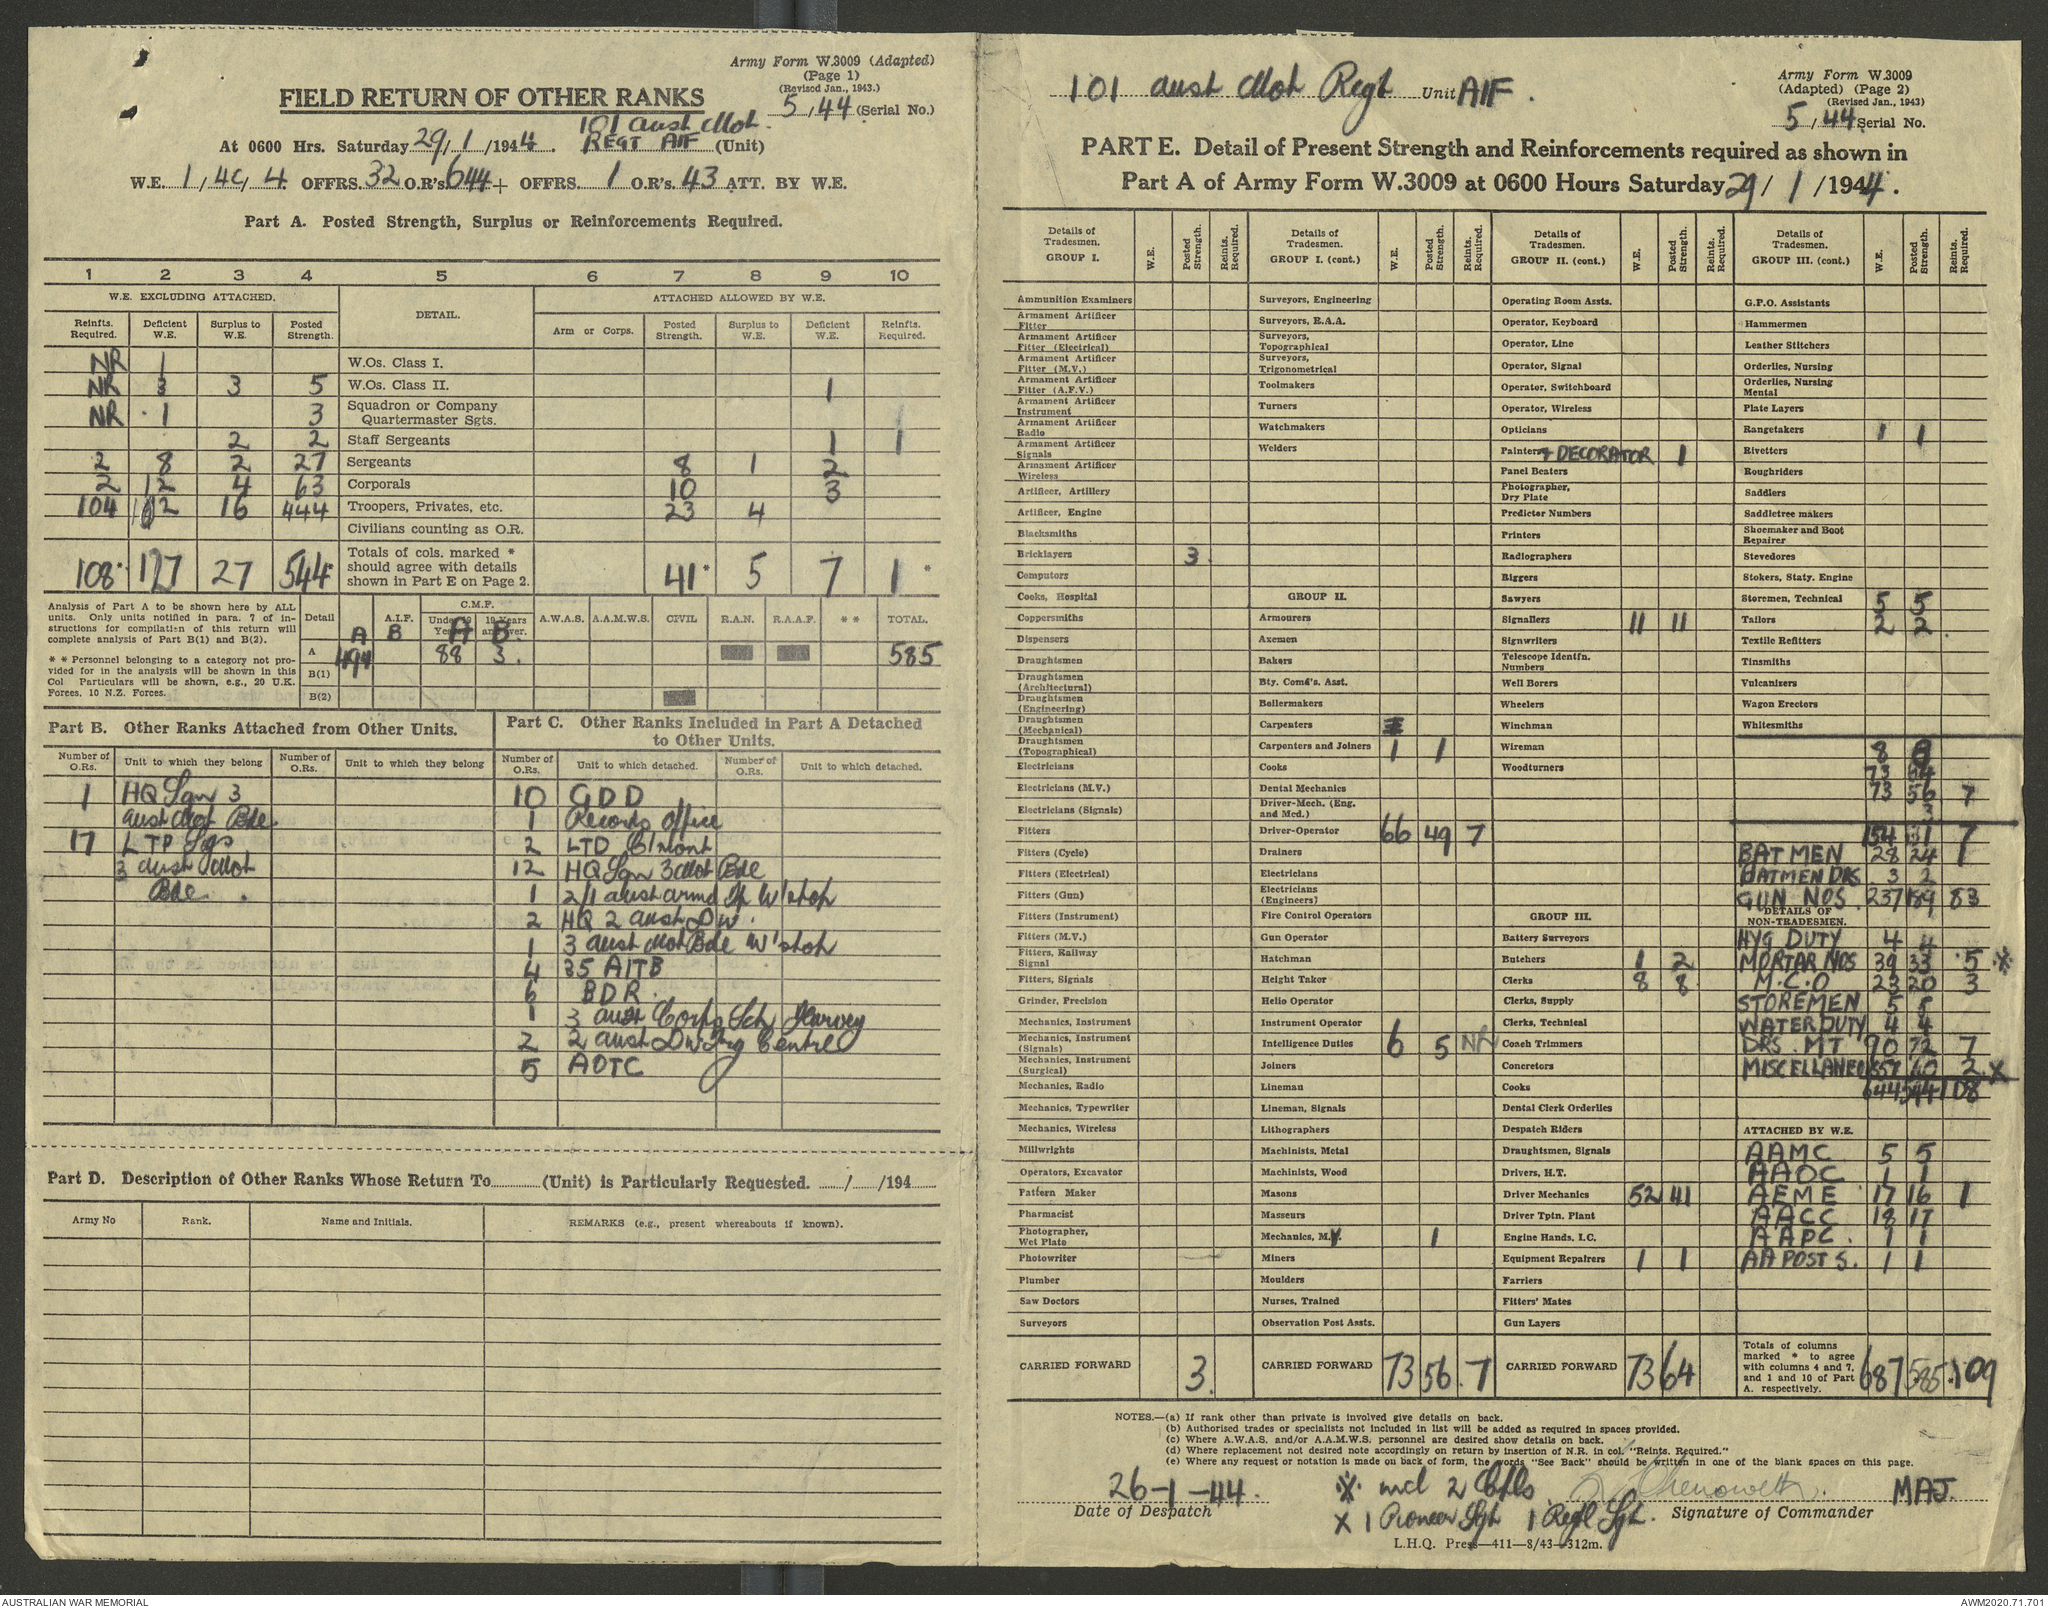 Army Form W.3009 (Adapted)
(Page 1)
(Revised Jan., 1943.)
FIELD RETURN OF OTHER RANKS
5/44 (Serial No.)
101 Aust Mot.
At 0600 Hrs. Saturday 29/1/1944. REGT AIF (Unit)
W.E. 1/4C/4. OFFRS. 32 O.R's. 644 + OFFRS. 1 O.R's. 43 ATT. BY W.E.
Part A. Posted Strength, Surplus or Reinforcements Required.
1 2 3 4 5 6 7 8 9 10
W.E. EXCLUDING ATTACHED. DETAIL. ATTACHED ALLOWED BY W.E.
Reinfts. Required. Deficient W.E. Surplus to W.E. Posted Strength. Arm or Corps. Posted Strength. Surplus to W.E. Deficient W.E. Reinfts. Required.
NR 1 W.Os. Class I.
NR 3 3 5 W.Os. Class II. 1
NR 1 3 Squadron or Company Quartermaster Sgts.
2 2 Staff Sergeants 1 1
2 8 2 27 Sergeants 8 1 2
2 12 4 63 Corporals 10 3
104 102 16 444 Troopers, Privates, etc. 23 4
Civilians counting as O.R.
108* 127 27 544* Totals of cols. marked * should agree with details shown in Part E on Page 2. 41* 5 7 1*
Analysis of Part A to be shown here by ALL units. Only units notified in para. 7 of instructions for compilation of this return will complete analysis of Part B(1) and B(2).
* * Personnel belonging to a category not provided for in the analysis will be shown in this Col Particulars will be shown, e.g., 20 U.K. Forces, 10 N.Z. Forces.
Detail A.I.F. C.M.F. Under 19 Years 19 Years and over. A.W.A.S. A.A.M.W.S. CIVIL R.A.N. R.A.A.F. * * TOTAL.
A B A B
A 494 88 3. 585
B(1)
B(2)
Part B. Other Ranks Attached from Other Units.
Number of O.Rs. Unit to which they belong Number of O.Rs. Unit to which they belong
1 HQ Sqn 3
Aust Mot Bde.
17 LTP Sigs
3 Aust Mot
Bde.
Part C. Other Ranks Included in Part A Detached to Other Units.
Number of O.Rs. Unit to which detached. Number of O.Rs. Unit to which detached.
10 GDD
1 Records Office
2 LTD C'mont
12 HQ Sqn 3 Mot Bde
1 2/1 Aust Armd Tp W'shop
2 HQ 2 Aust D W.
1 3 Aust Mot Bde W'shop
4 35 AITB
6 BDR.
1 3 Aust Corps Sch Harvey
2 2 Aust Dw Trg Centre
5 AOTC
Part D. Description of Other Ranks Whose Return To (Unit) is Particularly Requested. / /194
Army No Rank. Name and Initials. REMARKS (e.g., present whereabouts if known).
101 Aust Mot Regt Unit AIF.
Army Form W.3009
(Adapted) (Page 2)
(Revised Jan., 1943)
5/44 Serial No.
PART E. Detail of Present Strength and Reinforcements required as shown in
Part A of Army Form W.3009 at 0600 Hours Saturday 29/1/1944.
Details of Tradesmen. GROUP I. W.E. Posted Strength. Reints. Required.
Ammunition Examiners
Armament Artificer Fitter
Armament Artificer Fitter (Electrical)
Armament Artificer Fitter (M.V.)
Armament Artificer Fitter (A.F.V.)
Armament Artificer Instrument
Armament Artificer Radio
Armament Artificer Signals
Armament Artificer Wireless
Artificer, Artillery
Artificer, Engine
Blacksmiths
Bricklayers 3.
Computors
Cooks, Hospital
Coppersmiths
Dispensers
Draughtsmen
Draughtsmen (Architectural)
Draughtsmen (Engineering)
Draughtsmen (Mechanical)
Draughtsmen (Topographical)
Electricians
Electricians (M.V.)
Electricians (Signals)
Fitters
Fitters (Cycle)
Fitters (Electrical)
Fitters (Gun)
Fitters (Instrument)
Fitters (M.V.)
Fitters, Railway Signal
Fitters, Signals
Grinder, Precision
Mechanics, Instrument
Mechanics, Instrument (Signals)
Mechanics, Instrument (Surgical)
Mechanics, Radio
Mechanics, Typewriter
Mechanics, Wireless
Millwrights
Operators, Excavator
Pattern Maker
Pharmacist
Photographer, Wet Plate
Photowriter
Plumber
Saw Doctors
Surveyors
CARRIED FORWARD 3.
Details of Tradesmen. GROUP I. (cont.) W.E. Posted Strength. Reints. Required.
Surveyors, Engineering
Surveyors, R.A.A.
Surveyors, Topographical
Surveyors, Trigonometrical
Toolmakers
Turners
Watchmakers
Welders
GROUP II.
Armourers
Axemen
Bakers
Bty. Comd's. Asst.
Boilermakers
Carpenters
Carpenters and Joiners 1 1
Cooks
Dental Mechanics
Driver-Mech. (Eng. and Med.)
Driver-Operator 66 49 7
Drainers
Electricians
Electricians (Engineers)
Fire Control Operators
Gun Operator
Hatchman
Height Taker
Helio Operator
Instrument Operator
Intelligence Duties 6 5 NR
Joiners
Lineman
Lineman, Signals
Lithographers
Machinists, Metal
Machinists, Wood
Masons
Masseurs
Mechanics, M.V. 1
Miners
Moulders
Nurses, Trained
Observation Post Assts.
CARRIED FORWARD 73 56 7
Details of Tradesmen. GROUP II. (cont.) W.E. Posted Strength. Reints. Required.
Operating Room Assts.
Operator, Keyboard
Operator, Line
Operator, Signal
Operator, Switchboard
Operator, Wireless
Opticians
Painters + DECORATOR 1
Panel Beaters
Photographer, Dry Plate
Predictor Numbers
Printers
Radiographers
Riggers
Sawyers
Signallers 11 11
Signwriters
Telescope Identfn. Numbers
Well Borers
Wheelers
Winchman
Wireman
Woodturners
GROUP III.
Battery Surveyors
Butchers 1 2
Clerks 8 8
Clerks, Supply
Clerks, Technical
Coach Trimmers
Concretors
Cooks
Dental Clerk Orderlies
Despatch Riders
Draughtsmen, Signals
Drivers, H.T.
Driver Mechanics 52 41
Driver Tptn. Plant
Engine Hands, I.C.
Equipment Repairers 1 1
Farriers
Fitters' Mates
Gun Layers
CARRIED FORWARD 73 64
Details of Tradesmen. GROUP III. (cont.) W.E. Posted Strength. Reints. Required.
G.P.O. Assistants
Hammermen
Leather Stitchers
Orderlies, Nursing
Orderlies, Nursing Mental
Plate Layers
Rangetakers 1 1
Rivetters
Roughriders
Saddlers
Saddletree makers
Shoemaker and Boot Repairer
Stevedores
Stokers, Staty. Engine
Storemen, Technical 5 5
Tailors 2 2
Textile Refitters
Tinsmiths
Vulcanizers
Wagon Erectors
Whitesmiths
8 8
73 64
73 56 7
3
154 131 7
BATMEN 28 24 1
BATMEN DRS. 3 2
GUN NOS. 237 189 83
DETAILS OF NON-TRADESMEN.
HYG DUTY 4 4
MORTAR NOS 39 33 5 ※
M.C.O 23 20 3
STOREMEN 5 5
WATER DUTY 4 4
DRS. MT 90 72 7
MISCELLANEOUS 57 60 2 X
644 544 108
ATTACHED BY W.E.
AAMC 5 5
AAOC 1 1
AEME 17 16 1
AACC 18 17
AAPC. 1 1
AA POST S. 1 1
Totals of columns marked * to agree with columns 4 and 7, and 1 and 10 of Part A. respectively. 687 585 109
NOTES.—(a) If rank other than private is involved give details on back.
(b) Authorised trades or specialists not included in list will be added as required in spaces provided.
(c) Where A.W.A.S. and/or A.A.M.W.S. personnel are desired show details on back.
(d) Where replacement not desired note accordingly on return by insertion of N.R. in col. "Reints. Required."
(e) Where any request or notation is made on back of form, the words "See Back" should be written in one of the blank spaces on this page.
26-1-44. ※ incl 2 Cpls. Chenoweth. MAJ.
Date of Despatch X 1 Pioneer Sgt 1 Regtl Sgt. Signature of Commander
L.H.Q. Press—411—8/43—312m.
AUSTRALIAN WAR MEMORIAL
AWM2020.71.701